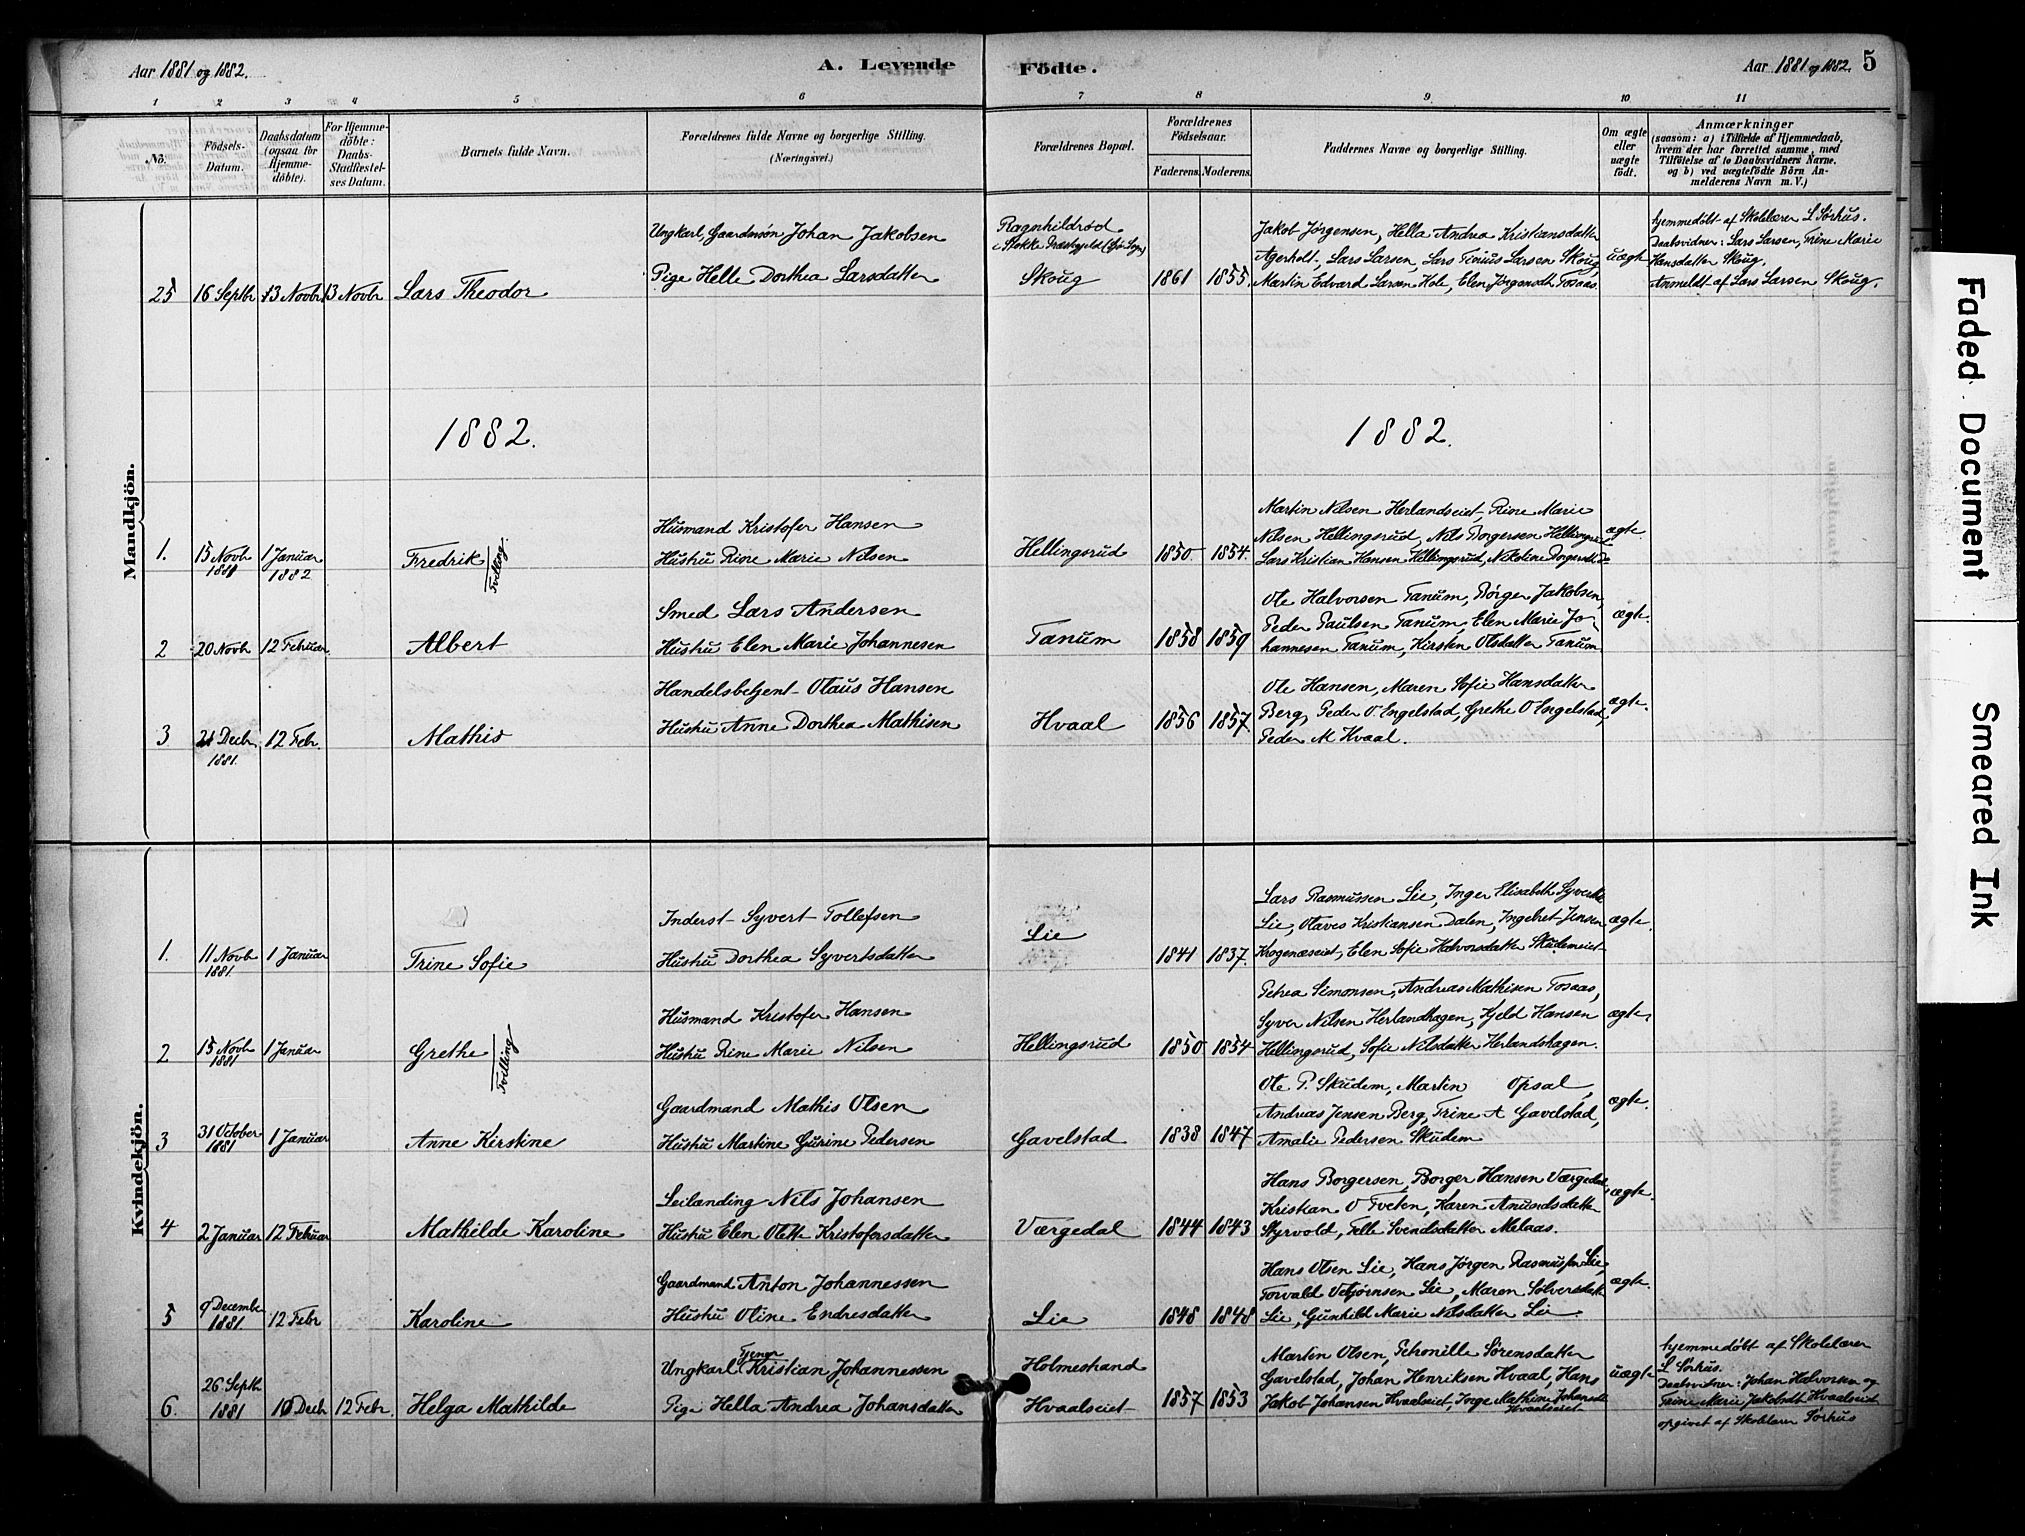 Aar 1881 og 1882.
A. Levende
Födte.
Aar 1881 og 1882.
5
1 2 3 4 5 6 7 8 9 10 11
No.
Födsels-
Datum.
Daabsdatum
(ogsaa for
Hjemme-
döbte).
For Hjemme-
döbte:
Daabs-
Stadfæstel-
ses Datum.
Barnets fulde Navn.
Forældrenes fulde Navne og borgerlige Stilling.
(Næringsvei.)
Forældrenes Bopæl.
Forældrenes
Födselsaar.
Faderens. Moderens.
Faddernes Navne og borgerlige Stilling.
Om ægte
eller
uægte
födt.
Anmærkninger
(saasom: a) i Tilfælde af Hjemmedaab,
hvem der har forrettet samme, med
Tilföielse af to Daabsvidners Navne,
og b) ved uægtefödte Börn An-
melderens Navn m. V.)
Mandkjön.
25
16 Septbr
13 Novbr
13 Novbr
Lars Theodor
Ungkarl, Gaardmsøn Johan Jakobsen
Pige Helle Dorthea Larsdatter
Ragnhildrød
Skoug
1861
1855.
Jakob Jørgensen, Hella Andrea Kristiansdatter
Agerholt, Lars Larsen, Lars Tinius Larsen Skoug,
Martin Edvard Larsen Hole, Elen Jørgensdtr Tosaas
uægte
hjemmedøbt af Skolelærer L Sørhus.
Daabsvidner: Lars Larsen, Trine Marie
Hansdatter Skoug.
Anmeldt af Lars Larsen Skoug.
1882.
1882.
1.
15 Novb
1881
1 Januar
1882
Fredrik
Tvilling
Husmand Kristofer Hansen
Hustru Rine Marie Nilsen
Hellingsrud
1850
1854.
Martin Nilsen Herlandseiet, Rine Marie
Nilsen Hellingsrud, Nils Borgersen Hellingsrud
Lars Kristian Hansen Hellingsrud, Nikoline
ægte
2
20 Novb
12 Februar
Albert
Smed Lars Andersen
Hustru Elen Marie Johannesen
Tanum
1858
1859
Ole Halvorsen Tanum, Børger Jakobsen,
Peder Paulsen Tanum, Elen Marie Jo-
hannesen Tanum, Kirsten Olsdatter Tanum
ægte.
3
21 Decb.
1881.
12 Feb.
Mathis
Handelsbetjent Olaus Hansen
Hustru Anne Dorthea Mathisen
Hvaal
1856
1857.
Ole Hansen, Maren Sofie Hansdatter
Berg, Peder O Engelstad, Grethe O Engelstad,
Peder M Hvaal.
ægte.
Kvindekjön.
1.
11 Novb
1881.
1 Januar
Trine Sofie
Inderst Syvert Tollefsen
Hustru Dorthea Syvertsdatter
Lie
1841
1837.
Lars Rasmussen Lie, Inger Elisabeth
Lie, Olaves Kristiansen Dalen, Ingebret Jensen
Krogenæseiet, Elen Sofie Halvorsdatter Skudemeiet
ægte.
2
15 Novb
1881
1 Januar
Grethe
Tvilling
Husmand Kristofer Hansen
Hustru Rine Marie Nilsen
Hellingsrud
1850
1854
Petrea Simonsen, Andreas Mathisen Tosaas,
Syver Nilsen Herlandhagen, Kjeld Hansen
Hellingsrud, Sofie Nilsdatter Herlandshagen.
ægte,
3
31 October
1881
1 Januar
Anne Kirstine
Gaardmand Mathis Olsen
Hustru Martine Gurine Pedersen
Gavelstad
1838
1847
Ole P. Skudem, Martin Opsal,
Andreas Jensen Berg, Trine A Gavelstad,
Amalie Pedersen Skudem
ægte.
4
2 Januar
12 Februar
Mathilde Karoline
Leilænding Nils Johansen
Hustru Elen Olette Kristofersdatter
Værgedal
1844
1843
Hans Borgersen, Borger Hansen Værgedal,
Kristian O Tveten, Karen Amundsdatter
Styrvold, Svendsdatter Melaas.
ægte.
5
9 December
1881.
12 Febr
Karoline
Gaardmand Anton Johannessen
Hustru Oline Endresdatter
Lie
1848
1848
Hans Olsen Lie, Hans Jørgen Rasmussen Lie,
Torvald Vebjørnsen Lie, Maren Sølversdatr
Lie, Gunhild Marie Nilsdatter Lie.
ægte.
6.
26 Septb
1881
10 Decb
12 Febr.
Helga Mathilde
Ungkarl Tjener Kristian Johannessen
Pige Hella Andrea Johansdatter
Holmestrand
Hvaalseiet
1857
1853
Martin Olsen, Pehonille Sørensdatter
Gavelstad, Johan Henriksen Hvaal, Hans
Jakob Johansen Hvaalseiet, Mathine Johansdtr
Hvaalseiet
uægte
hjemmedøbt af Skolelærer
L Sørhus.
Daabsvidner: Johan Halvorsen og
Trine Marie Jakobsdt Hvaalseiet
opgivet af Skolelærer Sørhus
Faded Document
Smeared Ink